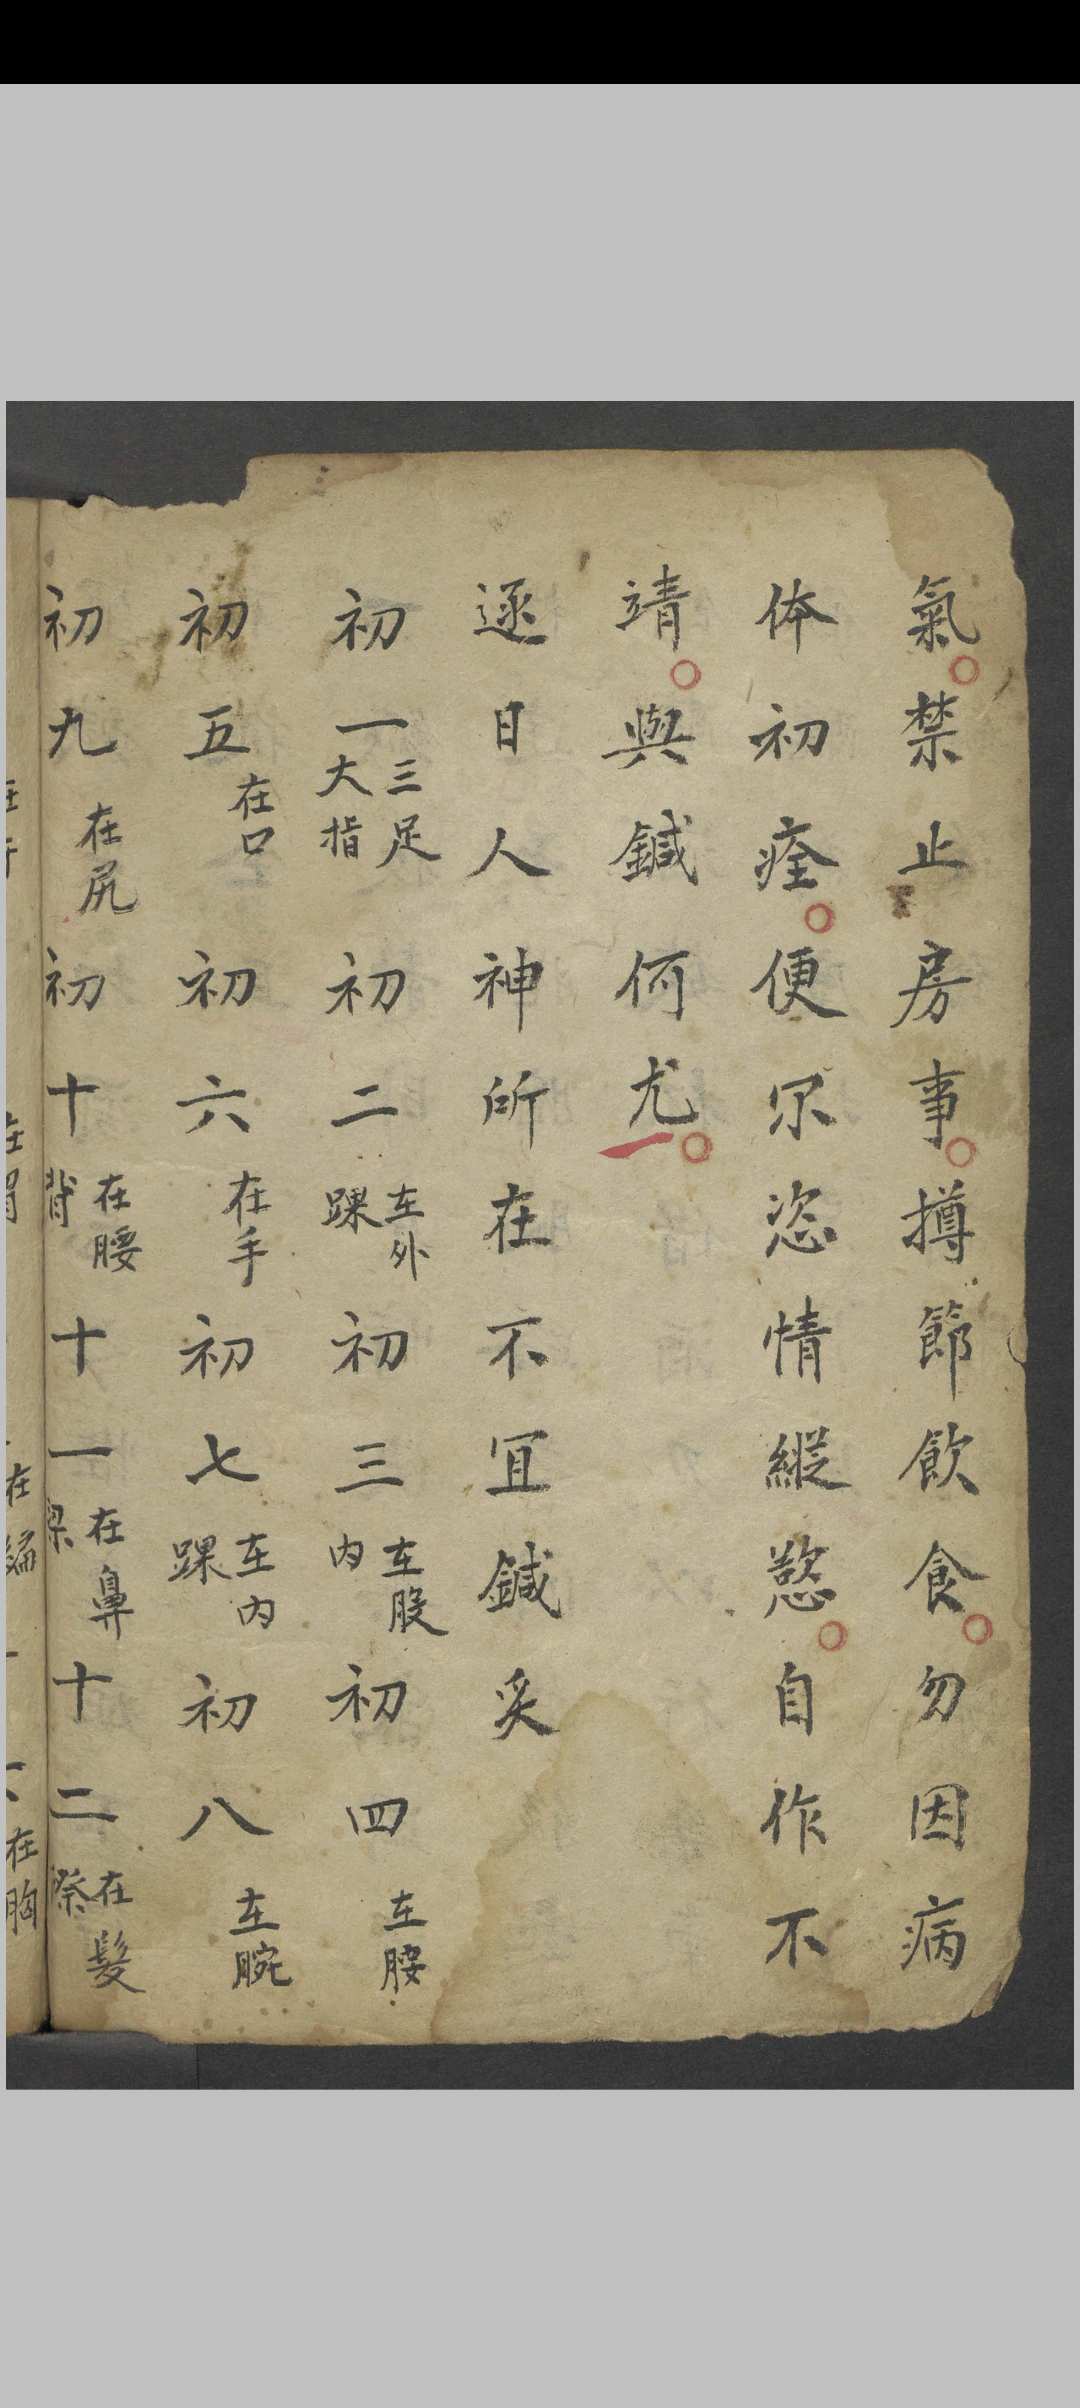 氣禁止房事撙節飲食勿因病
体初痊便尔恣情縱慾自作不
靖與鍼何尤
逐日人神所在不宜鍼炙
初一三足大指初二在外踝初三在股内初四在腰
初五在口初六在手初七在内踝初八在腕
初九在尻初十在腰背十一在鼻梁十二在髮祭